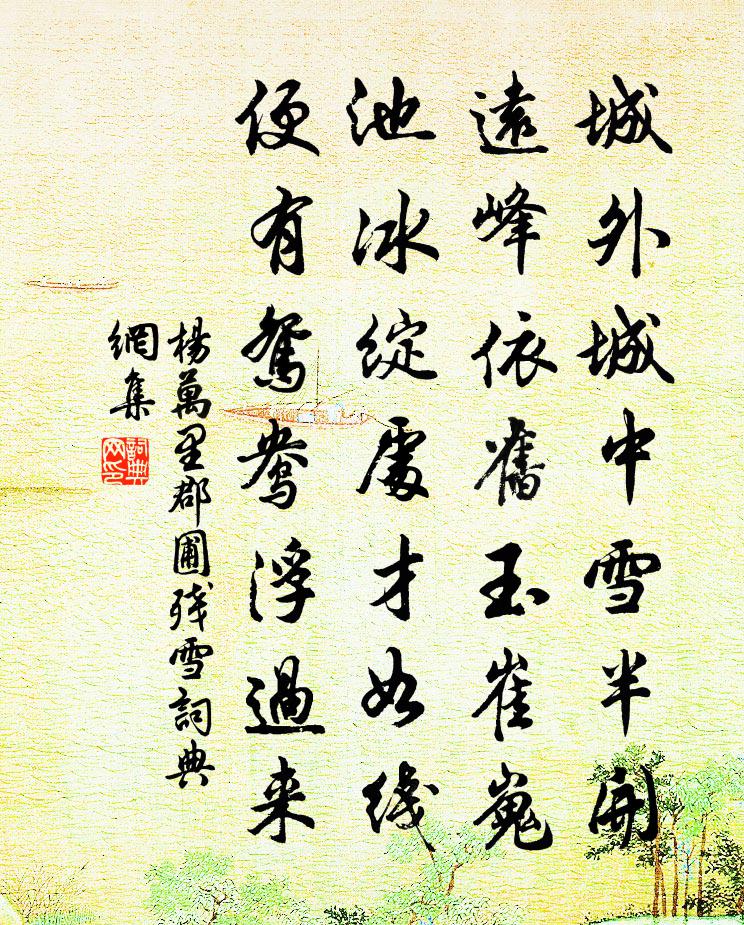 城外城中雪半開
遠峰依舊玉崔嵬
池冰綻處才如綫
便有鴛鴦浮過来
楊萬里郡圃殘雪詞典
網集
詞典
网印